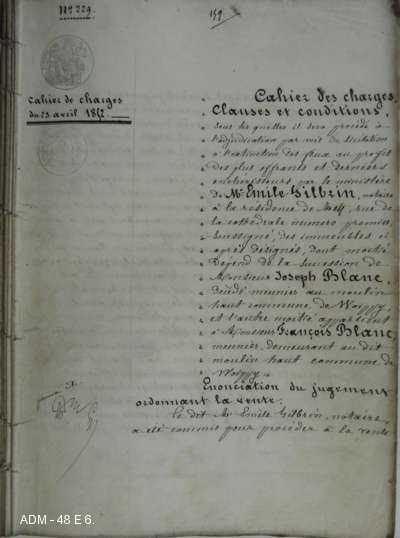 N° 229.
159.
Cahier de charges
du 23 avril 1872
Cahier des charges,
Clauses et conditions,
sous lesquelles il sera procédé à
l'adjudication par voie de licitation
à l'extinction des feux au profit
des plus offrants et derniers
enchérisseurs, par le ministère
de Me Emile Gilbrin, notaire
à la résidence de Metz, rue de
la cathédrale numéro premier,
soussigné, des immeubles ci
après désignés, dont moitié
dépend de la succession de
Monsieur Joseph Blanc,
décédé meunier au moulin
haut commune de Woippy,
et l'autre moitié appartient
à Monsieur François Blanc,
meunier, demeurant au dit
moulin haut commune de
Woippy.
Enonciation du jugement
ordonnant la vente:
Le dit Me Emile Gilbrin, notaire,
a été commis pour procéder à la vente
ADM - 48 E 6.